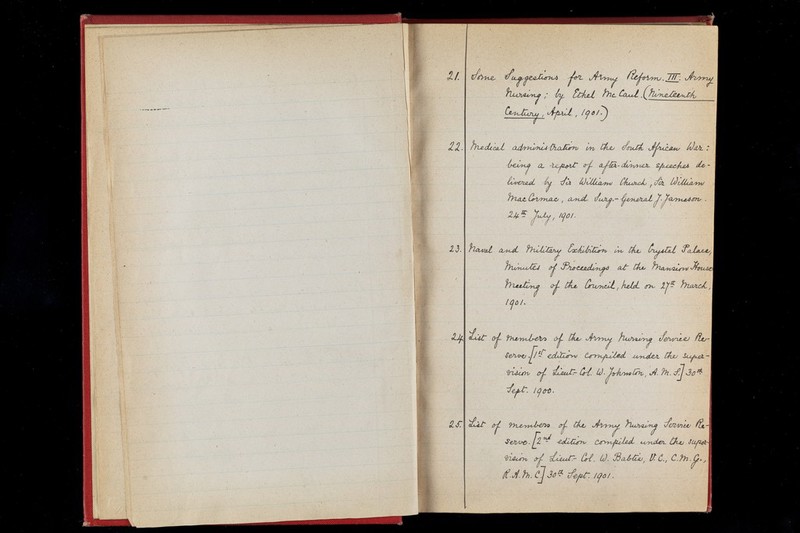 21. Some Suggestions for Army Reform. III. Army
Nursing: by Ethel McCaul. (Nineteenth
Century, April, 1901.)
22. Medical administration in the South African War:
being a report of after-dinner speeches de-
livered by Sir William Church, Sir William
MacCormac, and Surg.-General J. Jameson.
24th July, 1901.
23. Naval and Military Exhibition in the Crystal Palace,
Minutes of Proceedings at the Mansion House
Meeting of the Council, held on 27th March,
1901.
24. List of members of the Army Nursing Service Re-
serve. [1st edition compiled under the super-
vision of Lieut-Col. W. Johnston, A. M. S.] 30th
Sept. 1900.
25. List of members of the Army Nursing Service Re-
serve. [2nd edition compiled under the super-
vision of Lieut-Col. W. Babtie, V.C., C.M.G.,
R.A.M.C.] 30th Sept. 1901.